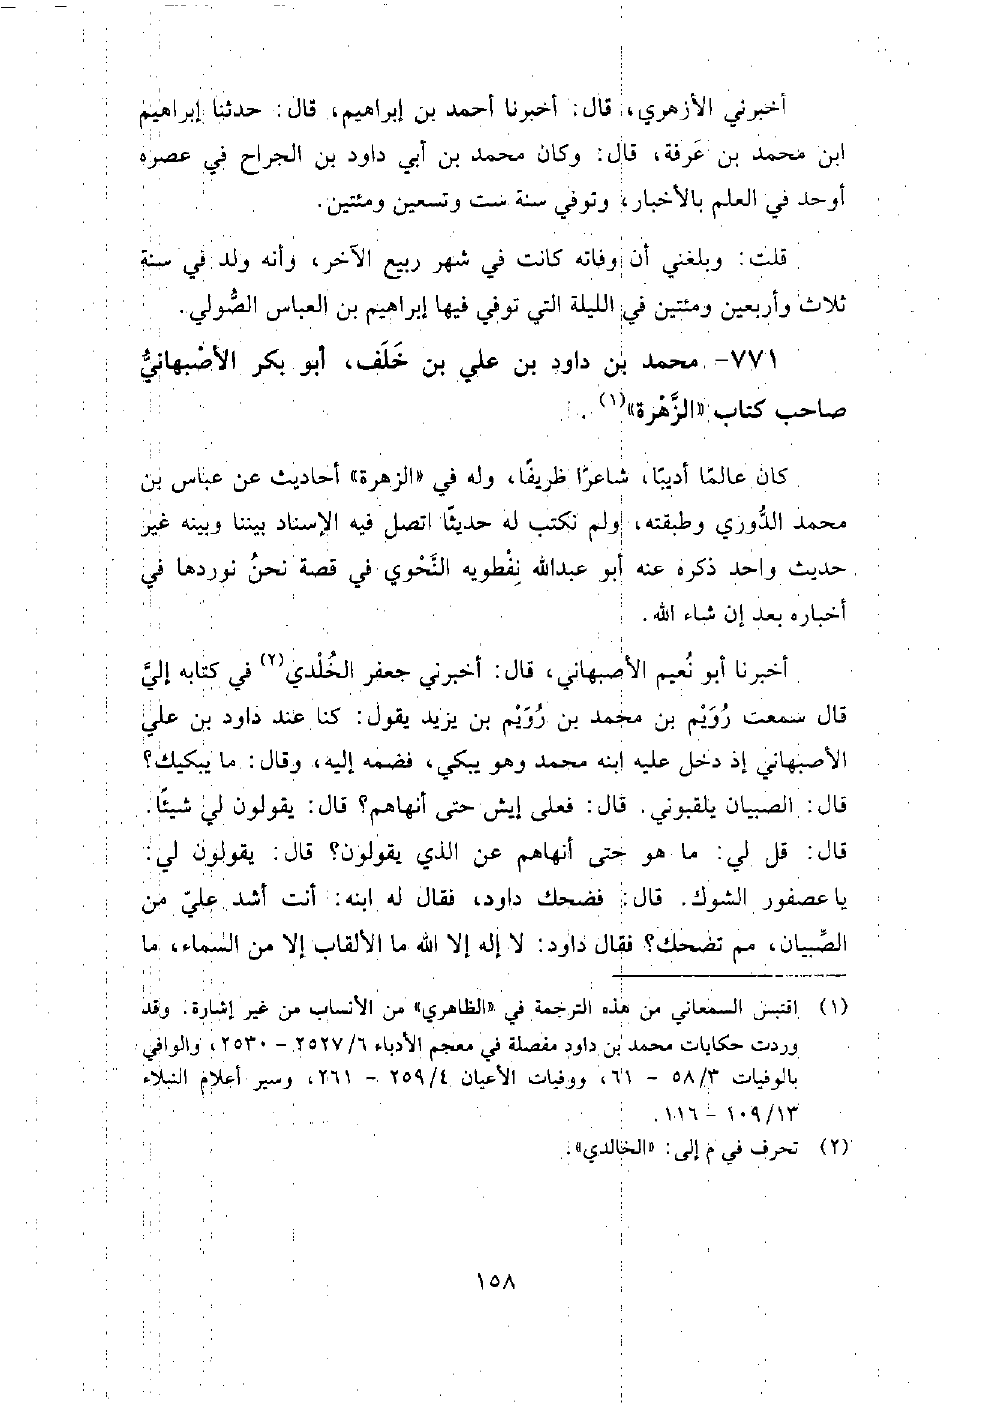 أخبرني الأزهري، قال: أخبرنا أحمد بن إبراهيم، قال: حدثنا إبراهيم
ابن محمد بن عَرفة، قال: وكان محمد بن أبي داود بن الجراح في عصره
أوحد في العلم بالأخبار، وتوفي سنة ست وتسعين ومئتين.
قلت: وبلغني أن وفاته كانت في شهر ربيع الآخر، وأنه ولد في سنة
ثلاث وأربعين ومئتين في الليلة التي توفي فيها إبراهيم بن العباس الصُّولي.
٧٧١- محمد بن داود بن علي بن خَلَف، أبو بكر الأصْبهانيُّ
صاحب كتاب «الزَّهْرة»(١).
كان عالمًا أديبًا، شاعرًا ظريفًا، وله في «الزهرة» أحاديث عن عباس بن
محمد الدُّوري وطبقته، ولم نكتب له حديثًا اتصل فيه الإسناد بيننا وبينه غير
حديث واحد ذكره عنه أبو عبدالله نِفْطويه النَّحْوي في قصة نحنُ نوردها في
أخباره بعد إن شاء الله.
أخبرنا أبو نُعيم الأصبهاني، قال: أخبرني جعفر الخُلْدي(٢) في كتابه إليَّ
قال سمعت رُوَيْم بن محمد بن رُوَيْم بن يزيد يقول: كنا عند داود بن علي
الأصبهاني إذ دخل عليه ابنه محمد وهو يبكي، فضمه إليه، وقال: ما يبكيك؟
قال: الصبيان يلقبوني. قال: فعلى إيش حتى أنهاهم؟ قال: يقولون لي شيئًا.
قال: قل لي: ما هو حتى أنهاهم عن الذي يقولون؟ قال: يقولون لي:
يا عصفور الشوك. قال: فضحك داود، فقال له ابنه: أنت أشد عليّ من
الصِّبيان، مم تضحك؟ فقال داود: لا إله إلا الله ما الألقاب إلا من السماء، ما
(١) اقتبس السمعاني من هذه الترجمة في «الظاهري» من الأنساب من غير إشارة. وقد
وردت حكايات محمد بن داود مفصلة في معجم الأدباء ٦/ ٢٥٢٧ - ٢٥٣٠، والوافي
بالوفيات ٣/ ٥٨ - ٦١، ووفيات الأعيان ٤/ ٢٥٩ - ٢٦١، وسير أعلام النبلاء
١٣/ ١٠٩ - ١١٦.
(٢) تحرف في م إلى: «الخالدي».
١٥٨